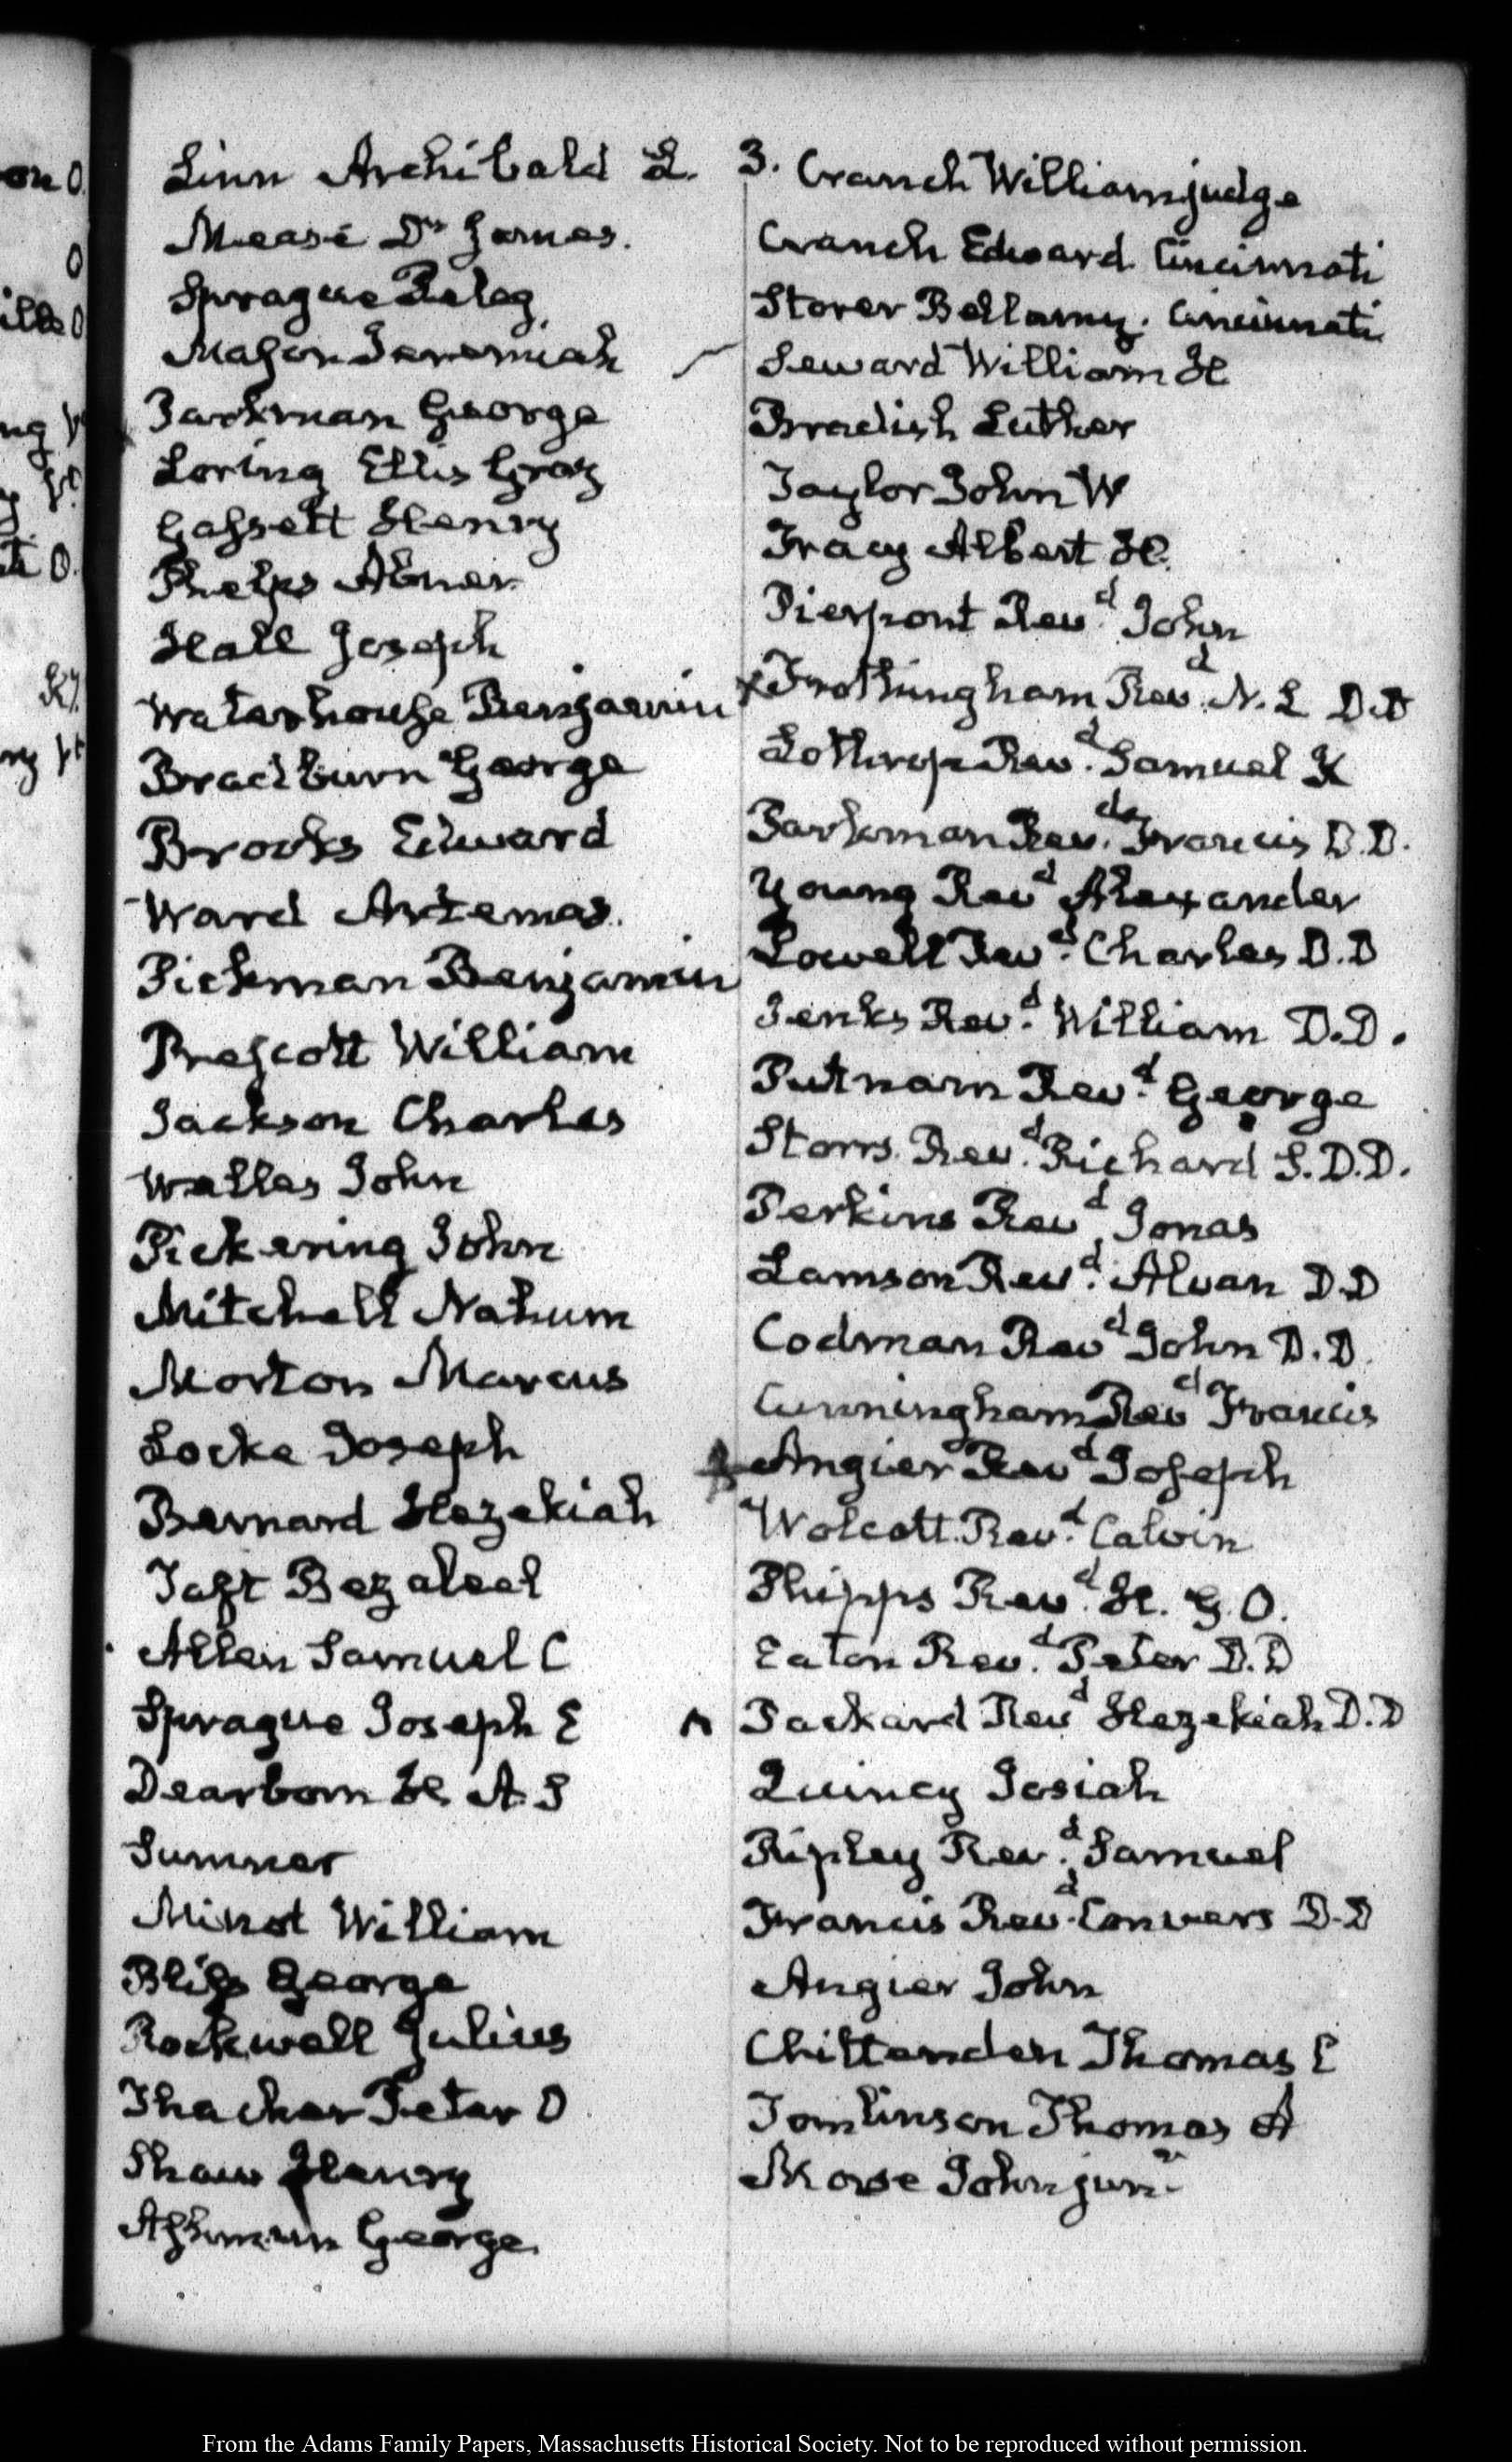 Linn Archibald L.
Mease Dr. James.
Sprague Peleg
Mason Jeremiah
Parkman George
Loring Ellis Gray
Gassett Henry
Phelps Abner
Hall Joseph
Waterhouse Benjamin
Bradburn George
Brooks Edward
Ward Artemas.
Pickman Benjamin
Prescott William
Jackson Charles
Welles John
Pickering John
Mitchell Nahum
Morton Marcus
Locke Joseph
Bernard Hezekiah
Taft Bezaleel
Allen Samuel C
Sprague Joseph E
Dearborn H. A. S
Sumner
Minot William
Bliss George
Rockwell Julius
Thacher Peter O
Shaw Henry
Ashmun George.
3. Cranch William judge
Cranch Edward Cincinnati
Storer Bellamy. Cincinnati
Seward William H
Bradish Luther
Taylor John W
Tracy Albert H.
Pierpont Revd. John
x Frothingham Revd. N. L D.D
Lothrop Revd. Samuel K
Parkman Revd. Francis D.D.
Young Revd Alexander
Lowell Revd. Charles D.D
Jenks Revd. William D.D.
Putnam Revd. George
Storrs. Revd. Richard S. D.D.
Perkins Revd. Jonas
Lamson Revd. Alvan D.D
Codman Revd John D.D.
Cunningham Revd Francis
Angier Revd Joseph
Wolcott. Revd. Calvin
Phipps Revd. H. G. O.
Eaton Revd. Peter D.D
Packard Revd Hezekiah D.D
Quincy Josiah
Ripley Revd. Samuel
Francis Revd. Convers D.D
Angier John
Chittenden Thomas C
Tomlinson Thomas A
Morse John junr.
on O.
O
ille O
ng
O.
Ky
From the Adams Family Papers, Massachusetts Historical Society. Not to be reproduced without permission.